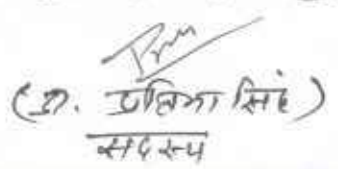 (डा. प्रतिमा सिंह)
सदस्य